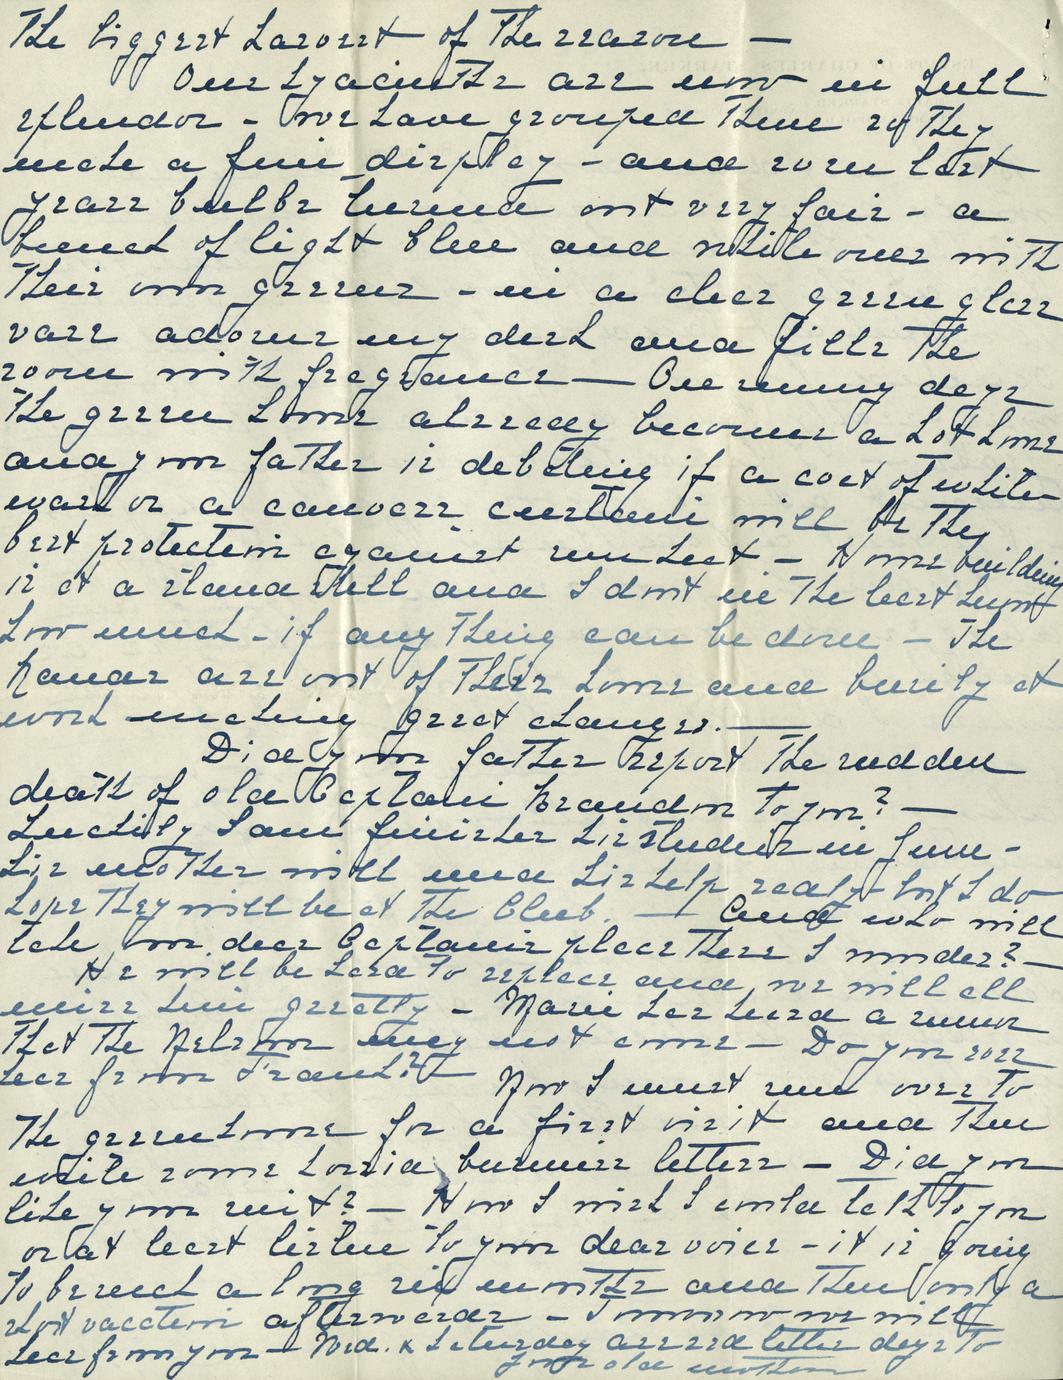 The biggest harvest of the season —
Our hyacinths are now in full
splendor - we have grouped them so they
make a fine display - and even last
years bulbs turned out very fair - a
bunch of light blue and white ones with
their own greens - in a clear green glass
vase adorns my desk and fills the
room with fragrance — On sunny days
the green house already becomes a hot house
and your father is debating if a coat of white
wash or a canvass curtain will be the
best protection against sun heat - House building
is at a stand still and I dont in the least know
how much - if any thing can be done — The
are out of their house and busily at
work making great changes. —
Did your father report the sudden
death of old Captain Brandon to you? —
Luckily Sam finishes his studies in June -
his mother will need his help really - but I do
hope they will be at the Club. — And who will
take our dear Captains place there I wonder? —
He will be hard to replace and we will all
miss him greatly - Marie has heard a rumor
that the may not come — Do you ever
hear from Frank? — Now I must run over to
the greenhouse for a first visit and then
write some horrid business letters — Did you
like your suit? — How I wish I could talk to you
or at least listen to your dear voice - it is going
to be such a long six months and then only a
short vacation afterwards - Tomorrow we will
hear from you - Wed. & Saturday are red letter days to
your old mother